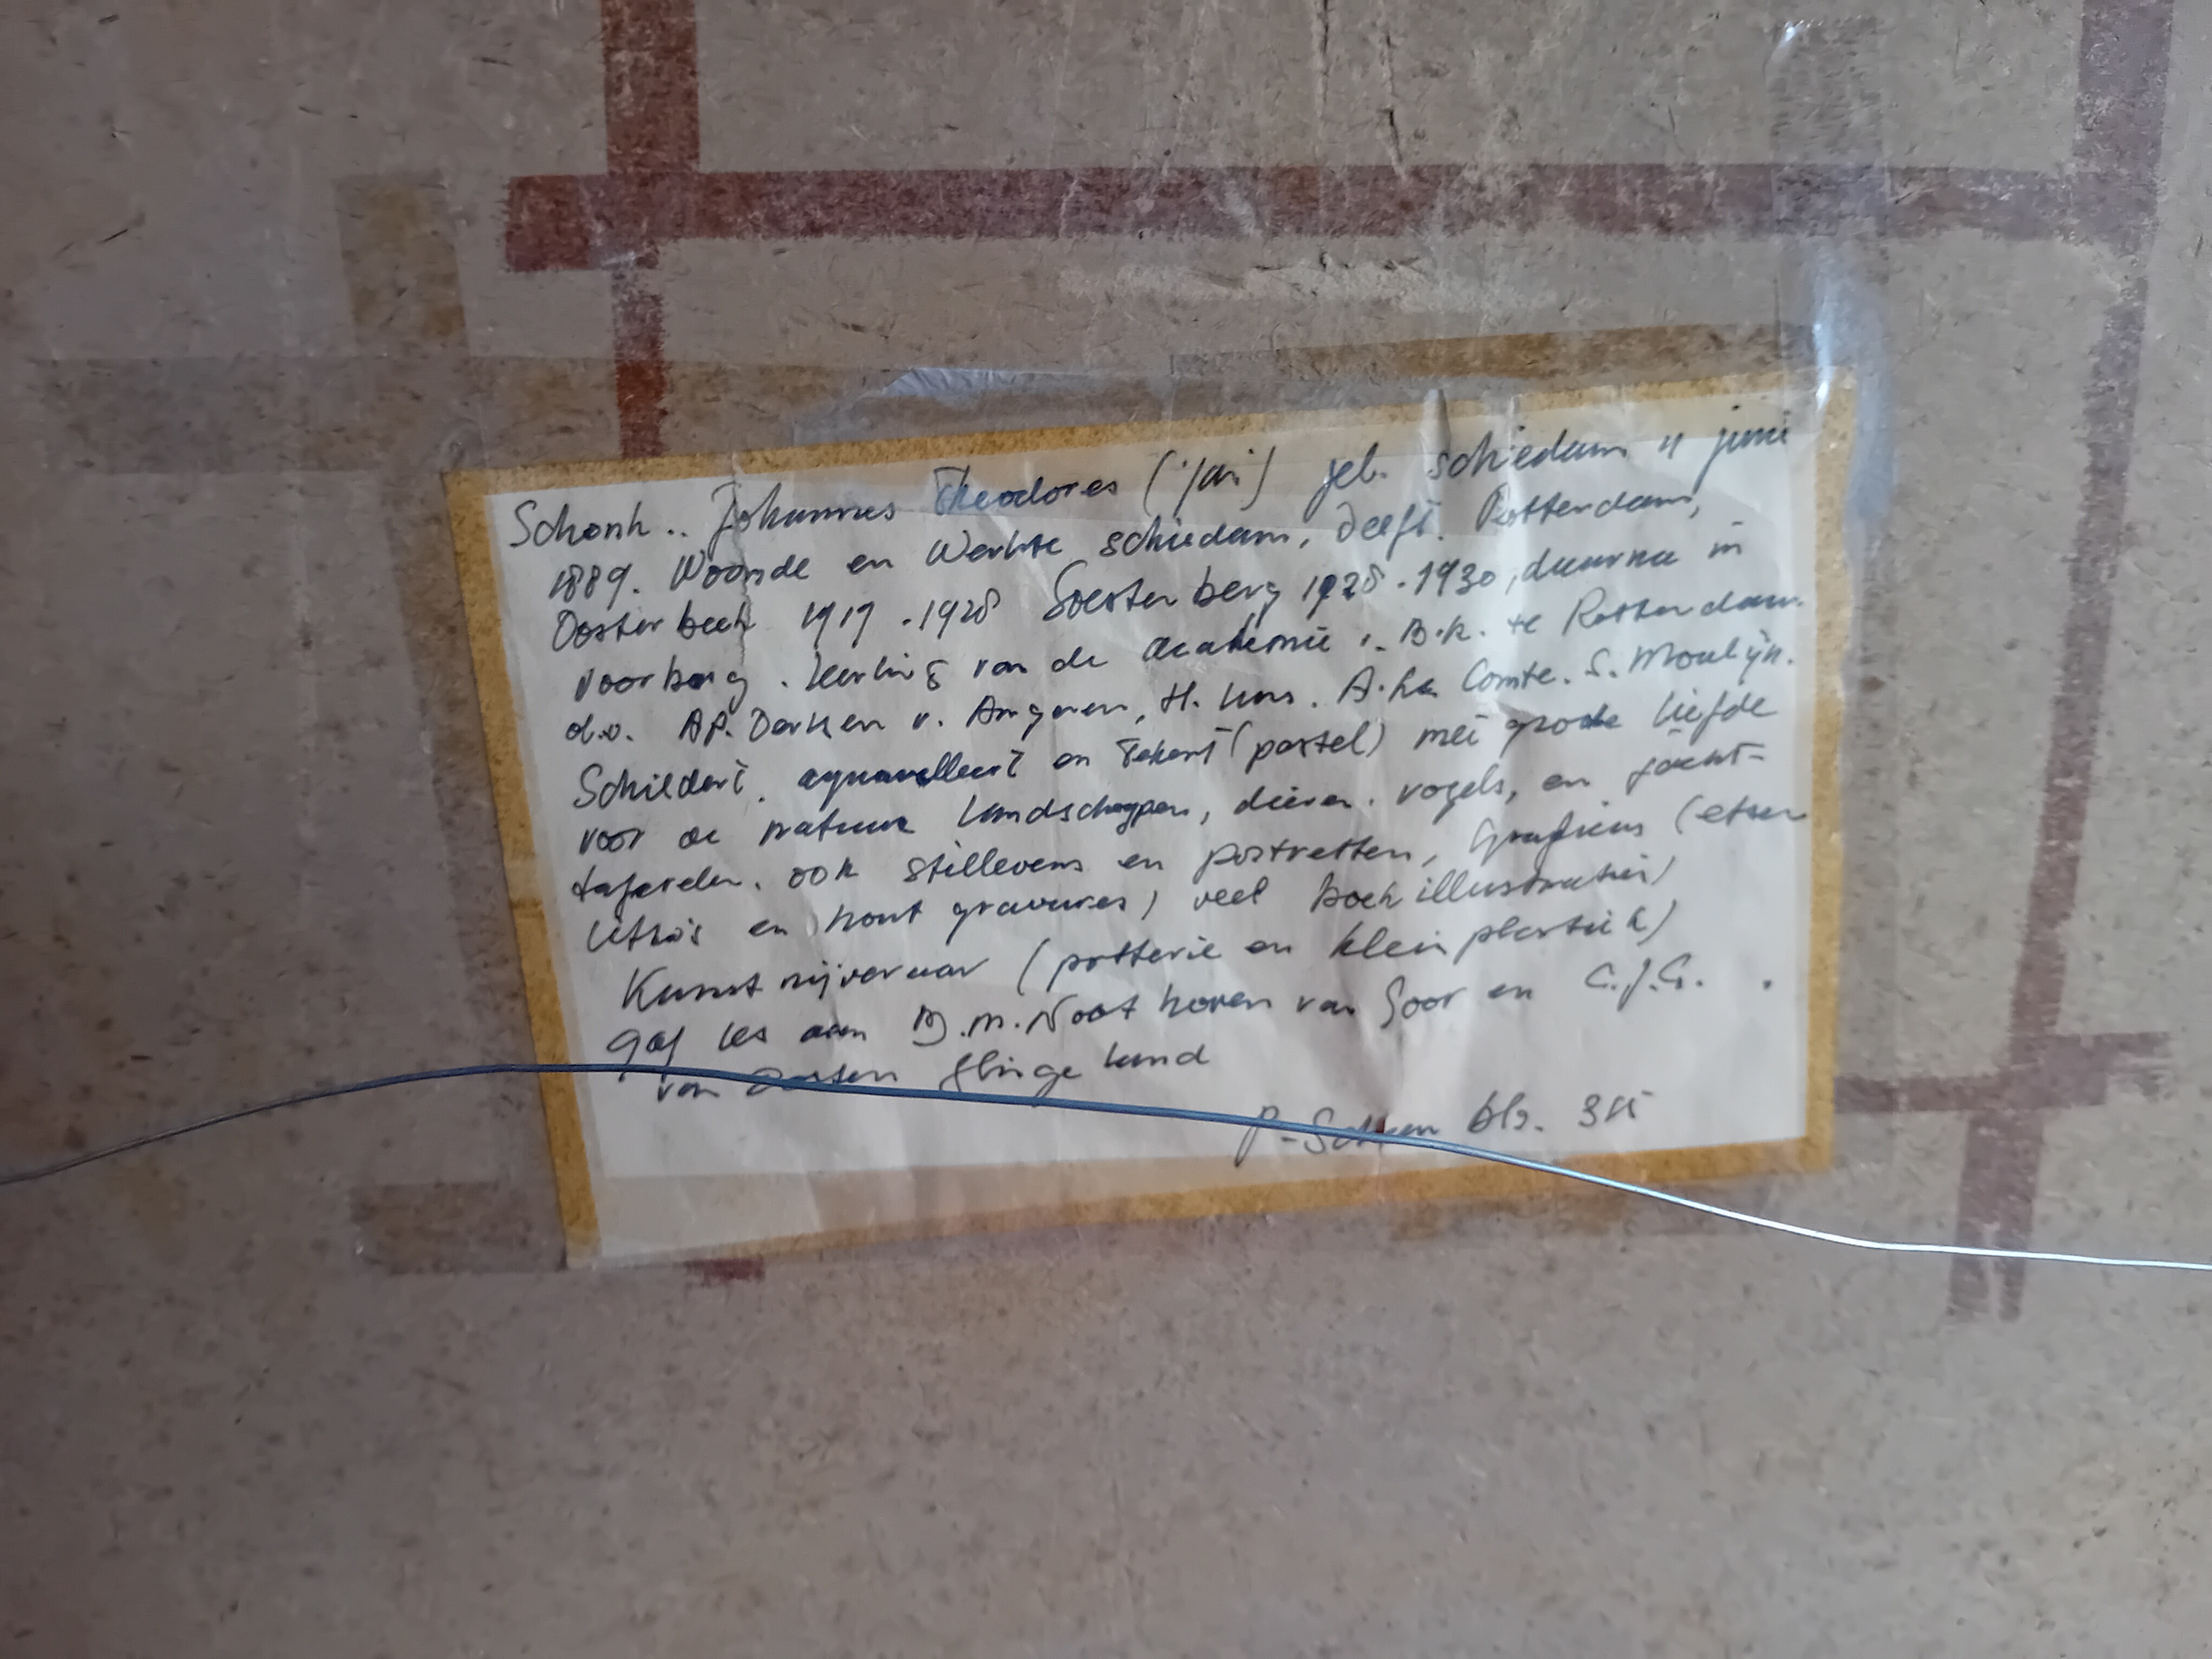 Schonk.. Johannes Theodores (Jan) geb. Schiedam 11 juni
1889. Woonde en Werkte schiedam, Delft. Rotterdam,
Oosterbeek 1919 - 1928 Soesterberg 1928 - 1930, daarna in
voorburg. leerling van de academie v. B.K. te Rotterdam
d.v. AP. Derksen v. Angeren, H. A. Le Comte. S. Moulijn.
Schildert, aquarelleert en tekent (pastel) met grote liefde
voor de natuur landschappen, dieren. vogels, en jacht-
taferelen. ook stillevens en portretten, Graficus (etsen
litho's en hout gravures) veel boek illustraties)
Kunstnijveraar (potterie en klein plastiek)
gaf les aan B.M. Noothoven van Goor en C.J.G.
van Oosten Slingeland
P. Scheen blz. 315